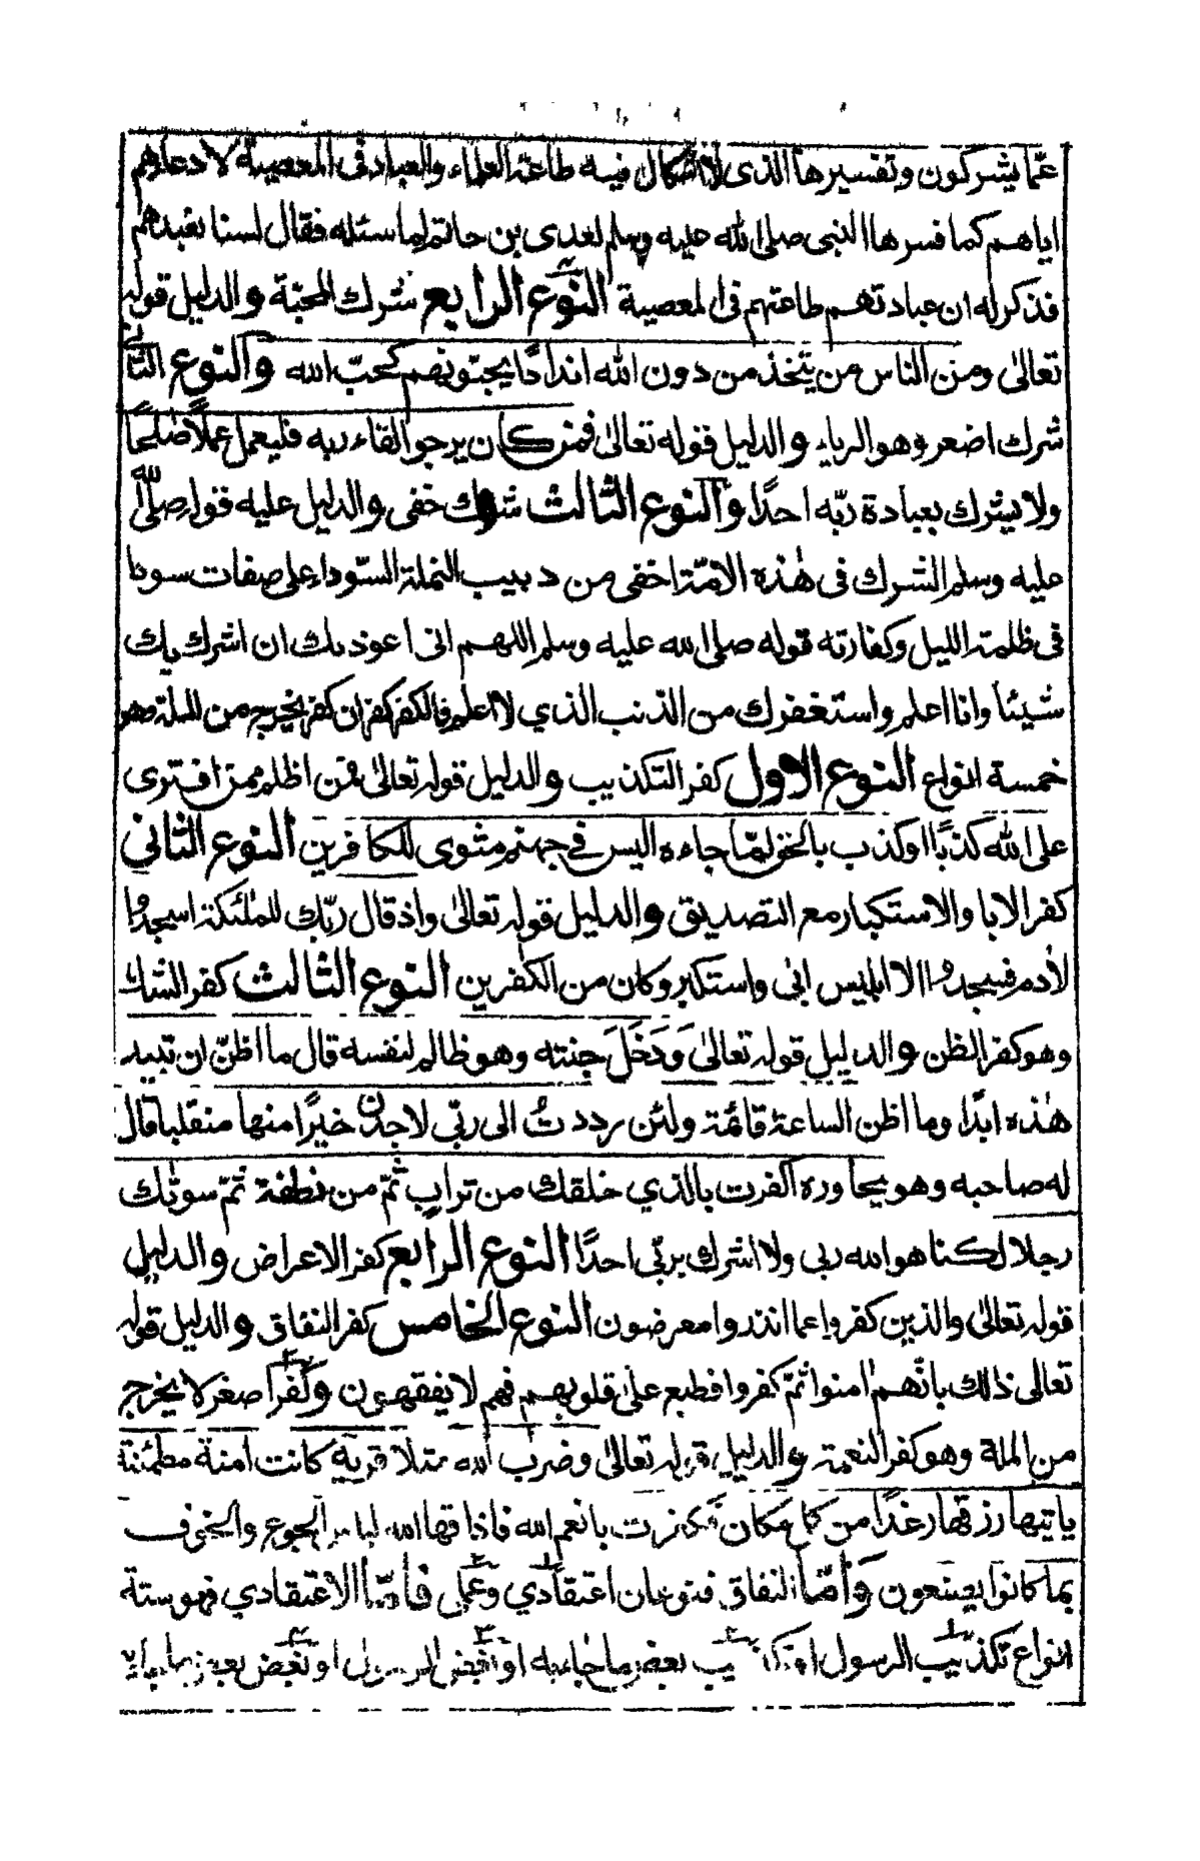 عمّا يشركون وتفسيرها الذى لا اشكال فيه طاعة العلماء والعباد فى المعصية لا دعاؤهم
اياهم كما فسرها النبى صلى الله عليه وسلم لعدى بن حاتم لما سئله فقال لسنا نعبدهم
فذكر له ان عبادتهم طاعتهم فى المعصية النوع الرابع شرك المحبّة والدليل قوله
تعالىٰ ومن الناس من يتّخذ من دون الله اندادًا يحبّونهم كحبّ الله والنوع الثانى
شرك اصغر وهو الرياء والدليل قوله تعالىٰ فمن كان يرجوا لقاء ربه فليعمل عملًا صٰلحًا
ولا يشرك بعبادة ربّه احدًا والنوع الثالث شرك خفى والدليل عليه قوله صلّى الله
عليه وسلم الشرك فى هٰذه الامّة اخفى من دبيب النملة السّوداء على صفات سودا
فى ظلمة الليل وكفارته قوله صلى الله عليه وسلم اللهم انى اعوذ بك ان اشرك بك
شيئا وانا اعلم واستغفرك من الذنب الذي لا اعلم فالكفر كفران كفر يخرج من الملة وهو
خمسة انواع النوع الاول كفر التكذيب والدليل قوله تعالىٰ فمن اظلم ممن افترى
على الله كذبًا او كذب بالحق لمّا جاءه اليس في جهنم مثوى للكافرين النوع الثاني
كفر الابا والاستكبار مع التصديق والدليل قوله تعالىٰ واذ قال ربّك للملٰئكة اسجدوا
لأدم فسجدوا الا ابليس ابٰى واستكبر وكان من الكٰفرين النوع الثالث كفر الشك
وهو كفر الظن والدليل قوله تعالىٰ وَدَخَلَ جنته وهو ظالم لنفسه قال ما اظنّ ان تبيد
هٰذه ابدًا وما اظن الساعة قائمة ولئن رددتُ الى ربّي لاجدن خيرًا منها منقلبا قال
له صاحبه وهو يحاوره اكفرت بالذي خلقك من تراب ثمّ من نطفة ثمّ سوّٰك
رجلا لكنا هو الله ربى ولا اشرك بربّى احدًا النوع الرابع كفر الاعراض والدليل
قوله تعالىٰ والذين كفروا عما انذروا معرضون النوع الخامس كفر النفاق والدليل قوله
تعالى ذالك بانّهم اٰمنوا ثمّ كفروا فطبع علىٰ قلوبهم فهم لا يفقهون وكفر اصغر لا يخرج
من الملة وهو كفر النعمة والدليل قوله تعالىٰ وضرب الله مثلا قرية كانت اٰمنة مطمئنة
ياتيها رزقها رغدًا من كل مكان فكفرت بانعم الله فاذاقها الله لباس الجوع والخوف
بما كانوا يصنعون وأمّا النفاق فنوعان اعتقادي وعملى فأمّا الاعتقادي فهو ستة
انواع تكذيب الرسول او تكذيب بعض ما جاء به او بغض الرسول او بغض بعض ما جاء به